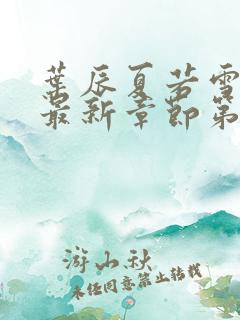 葉辰夏若雪
最新章節第
游山秋
未经同意禁止转载